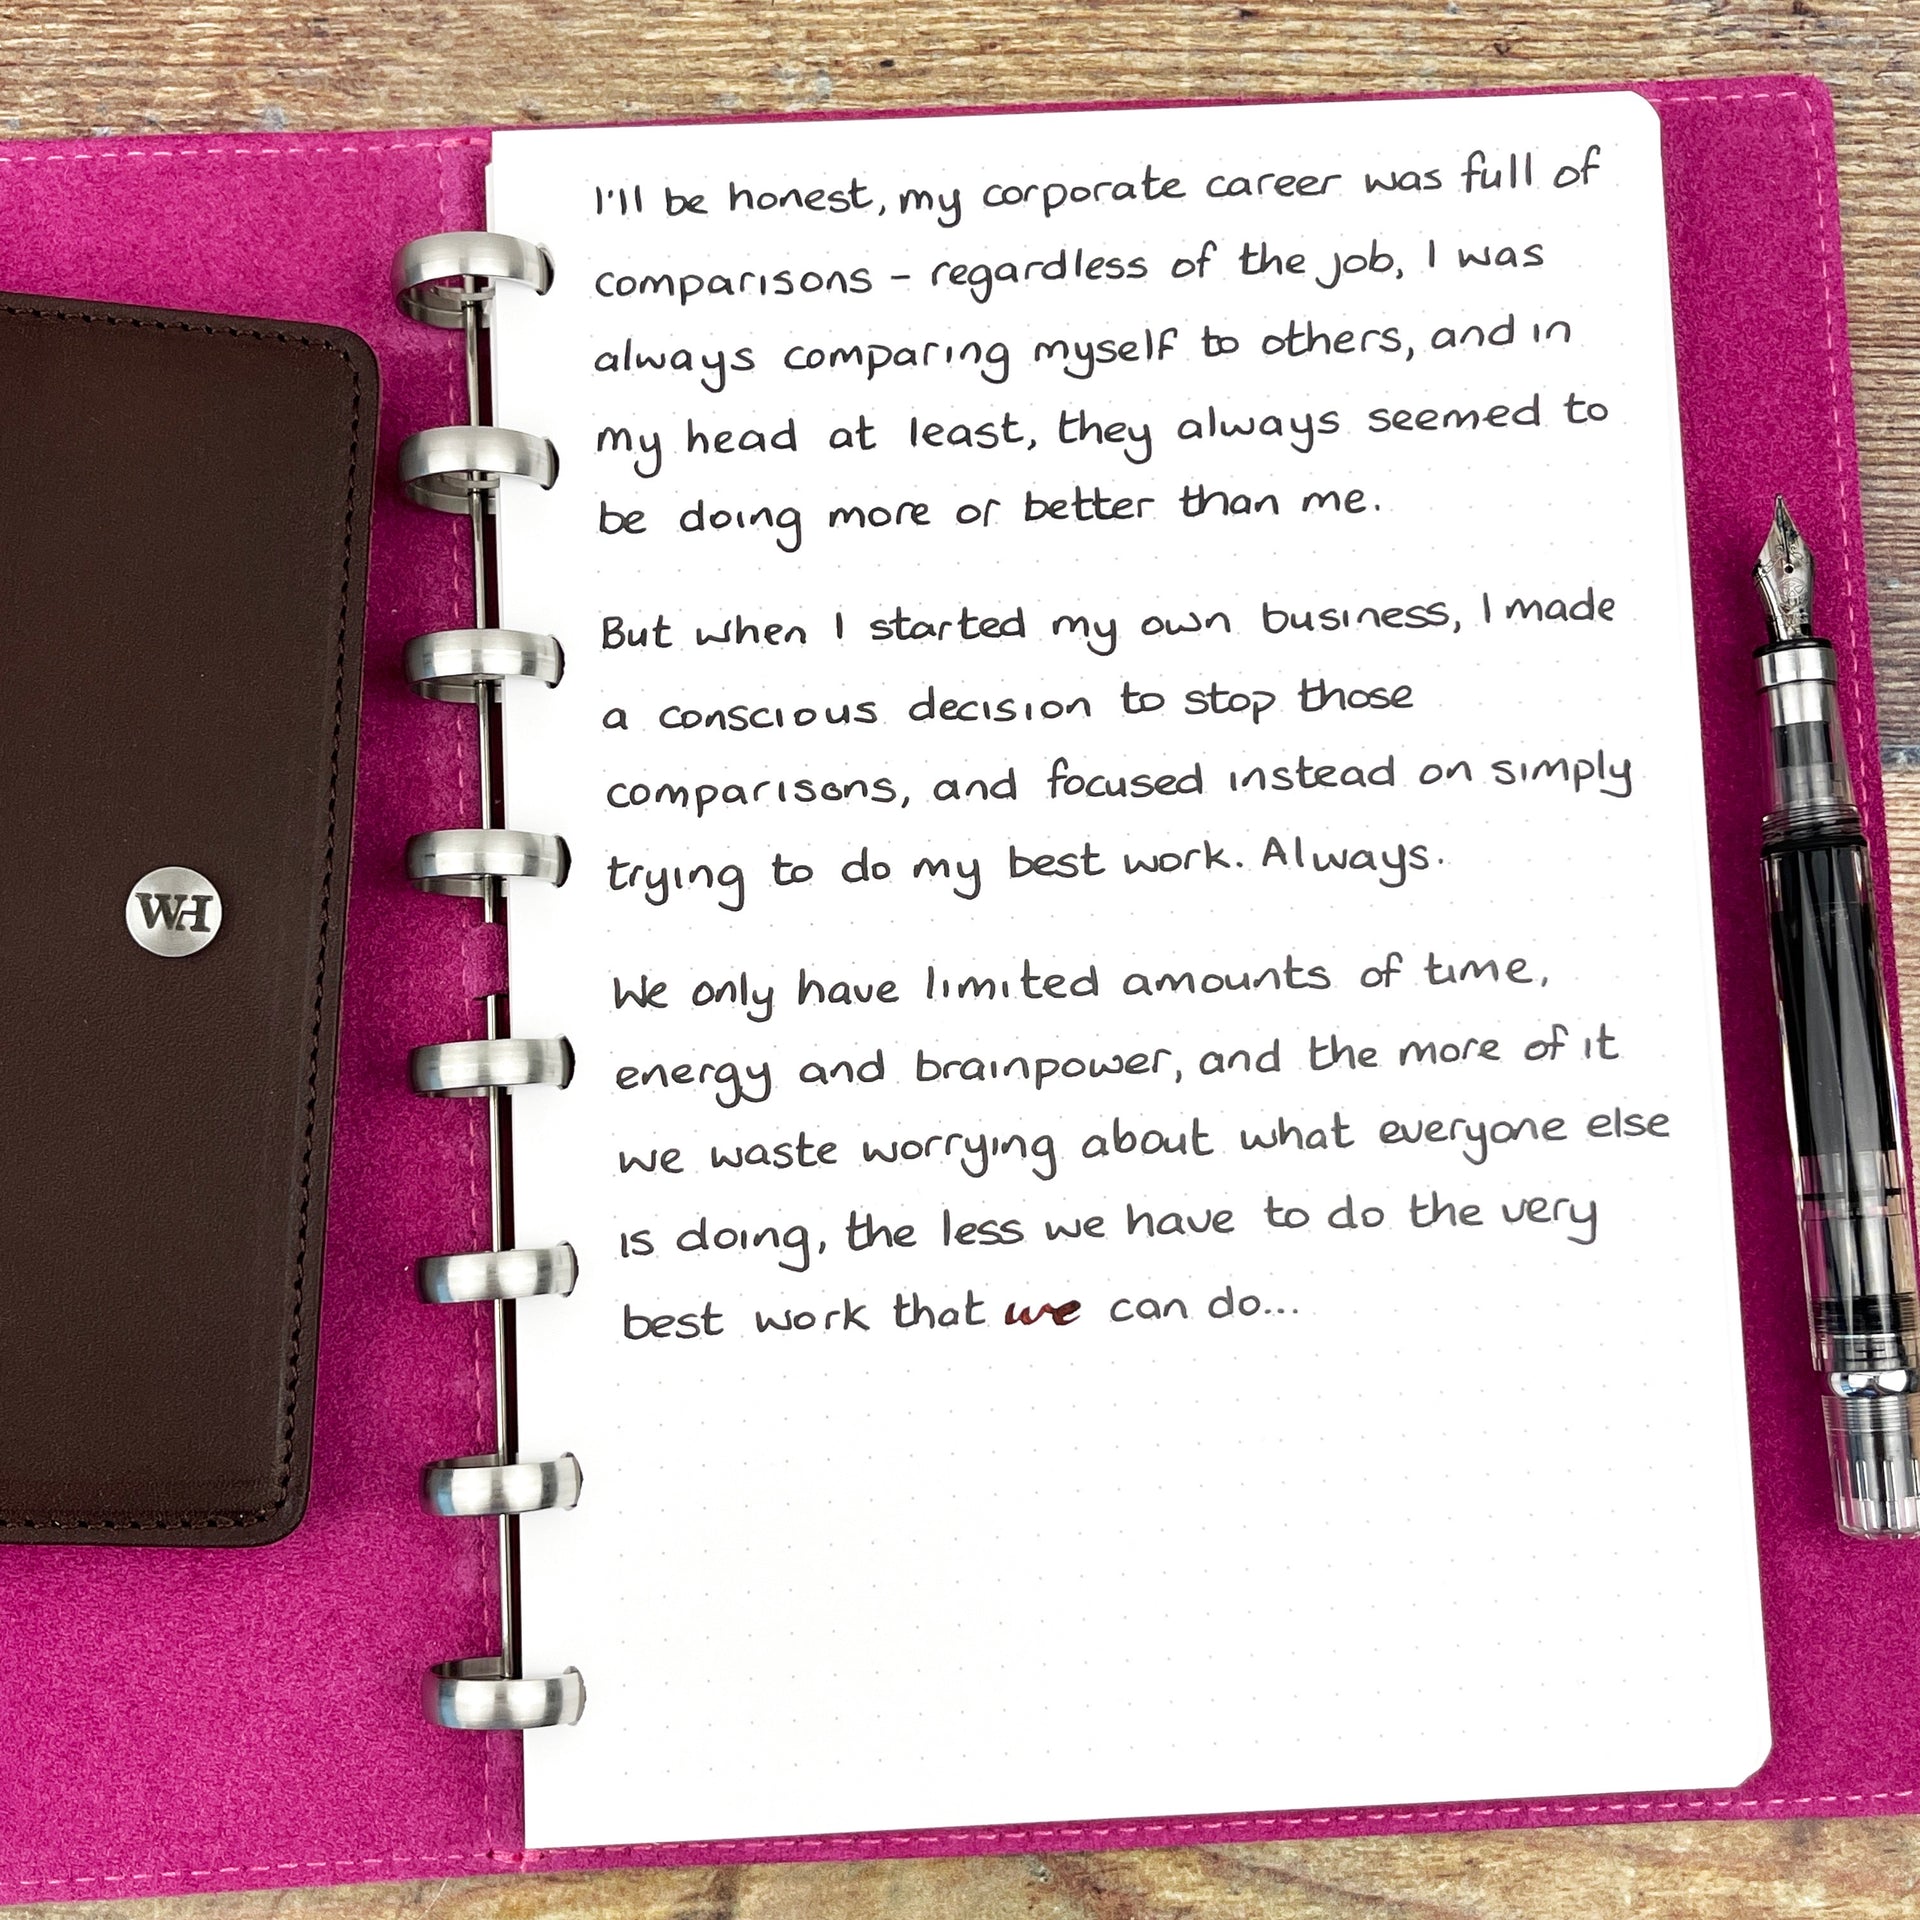 I'll be honest, my corporate career was full of
comparisons - regardless of the job, I was
always comparing myself to others, and in
my head at least, they always seemed to
be doing more or better than me.
But when I started my own business, I made
a conscious decision to stop those
comparisons, and focused instead on simply
trying to do my best work. Always.
We only have limited amounts of time,
energy and brainpower, and the more of it
we waste worrying about what everyone else
is doing, the less we have to do the very
best work that we can do...
WH